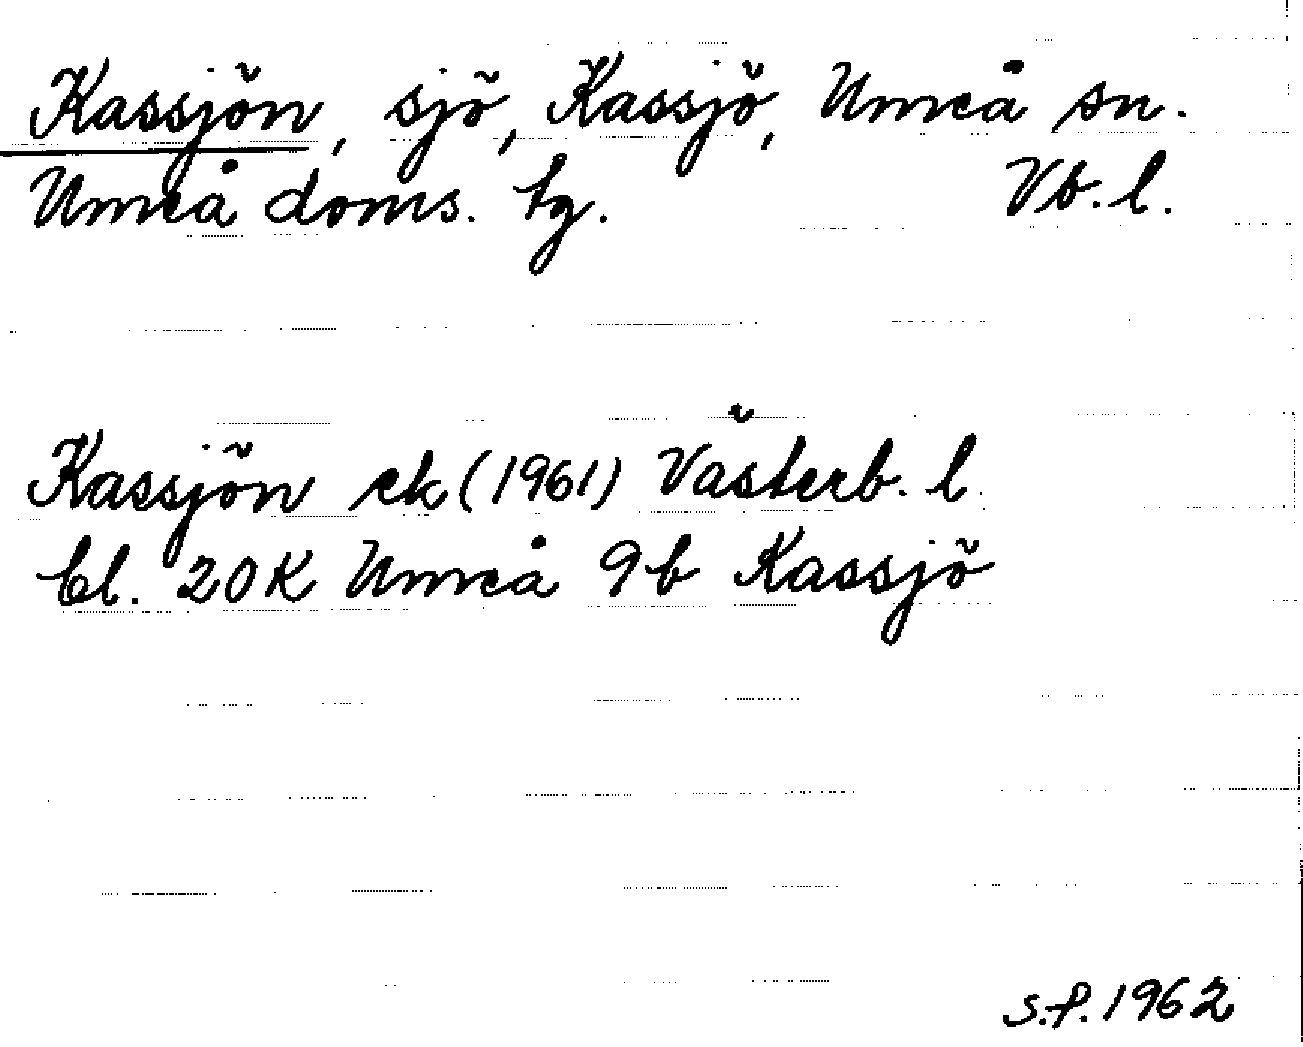 Kassjön, sjö, Kassjö, Umeå sn.
Umeå doms. tg. Vb. l.
Kassjön ek (1961) Västerb. l
bl. 20K Umeå 9b Kassjö
S.f. 1962